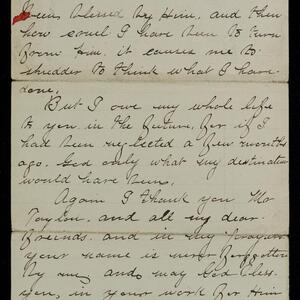 been blessed by Him, and then
how cruel I have been to turn
from Him. it causes me to
shudder to think what I have
done,
But I owe my whole life
to you in the future, for if I
had been neglected a few months
ago. God only what my destination
would have been.
Again I thank you Mr
Taylor. and all my dear
Freinds. and in my prayers
your name is never forgotten
by me, and may God bless
you, in your work for Him